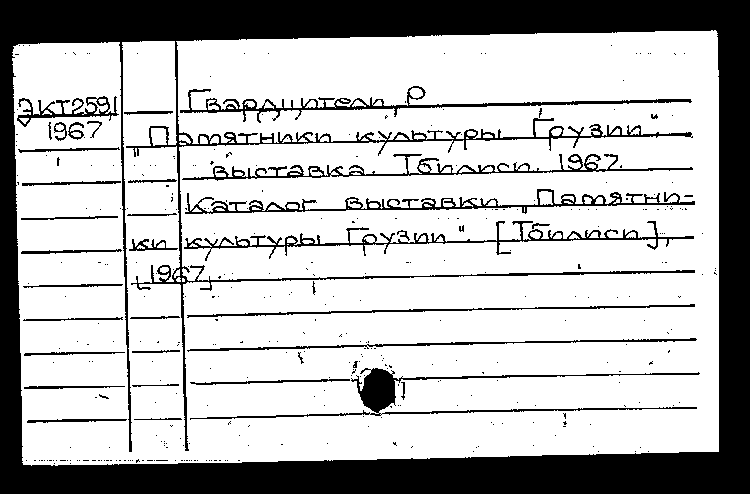 ЭКТ2591 Гвардцители, Р
1967
„Памятники культуры Грузии".
выставка. Тбилиси. 1967.
Каталог выставки „Памятни-
ки культуры Грузии". [Тбилиси],
1967.